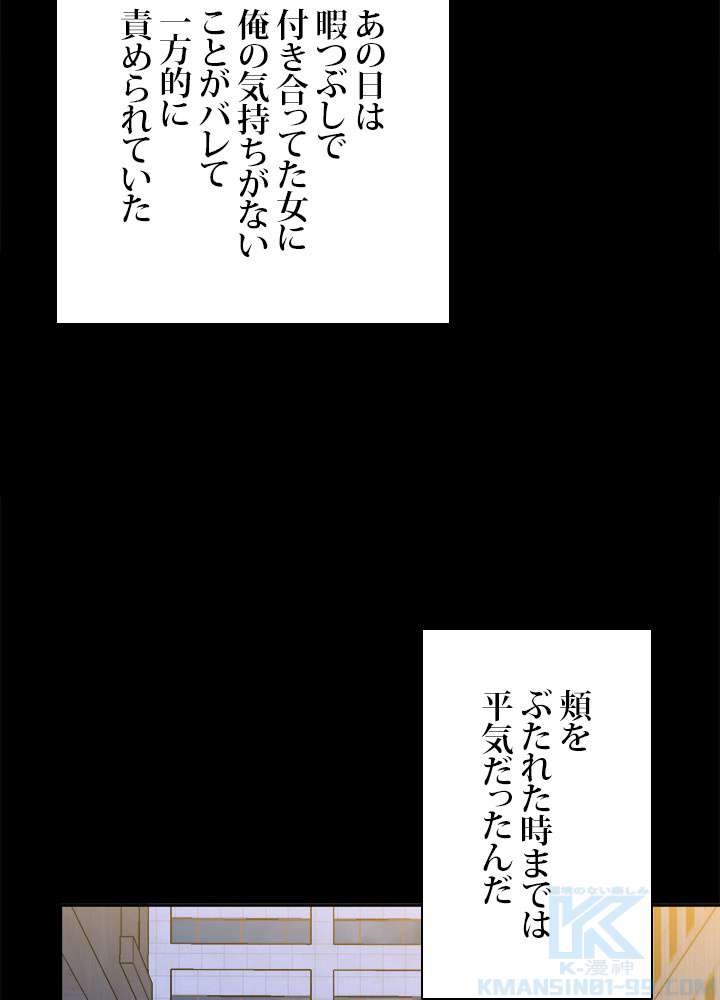 あの日は
暇つぶしで
付き合ってた女に
俺の気持ちがない
ことがバレて
一方的に
責められていた
頬を
ぶたれた時までは
平気だったんだ
限界のない楽しみ
K-漫神
KMANSIN01-99.COM